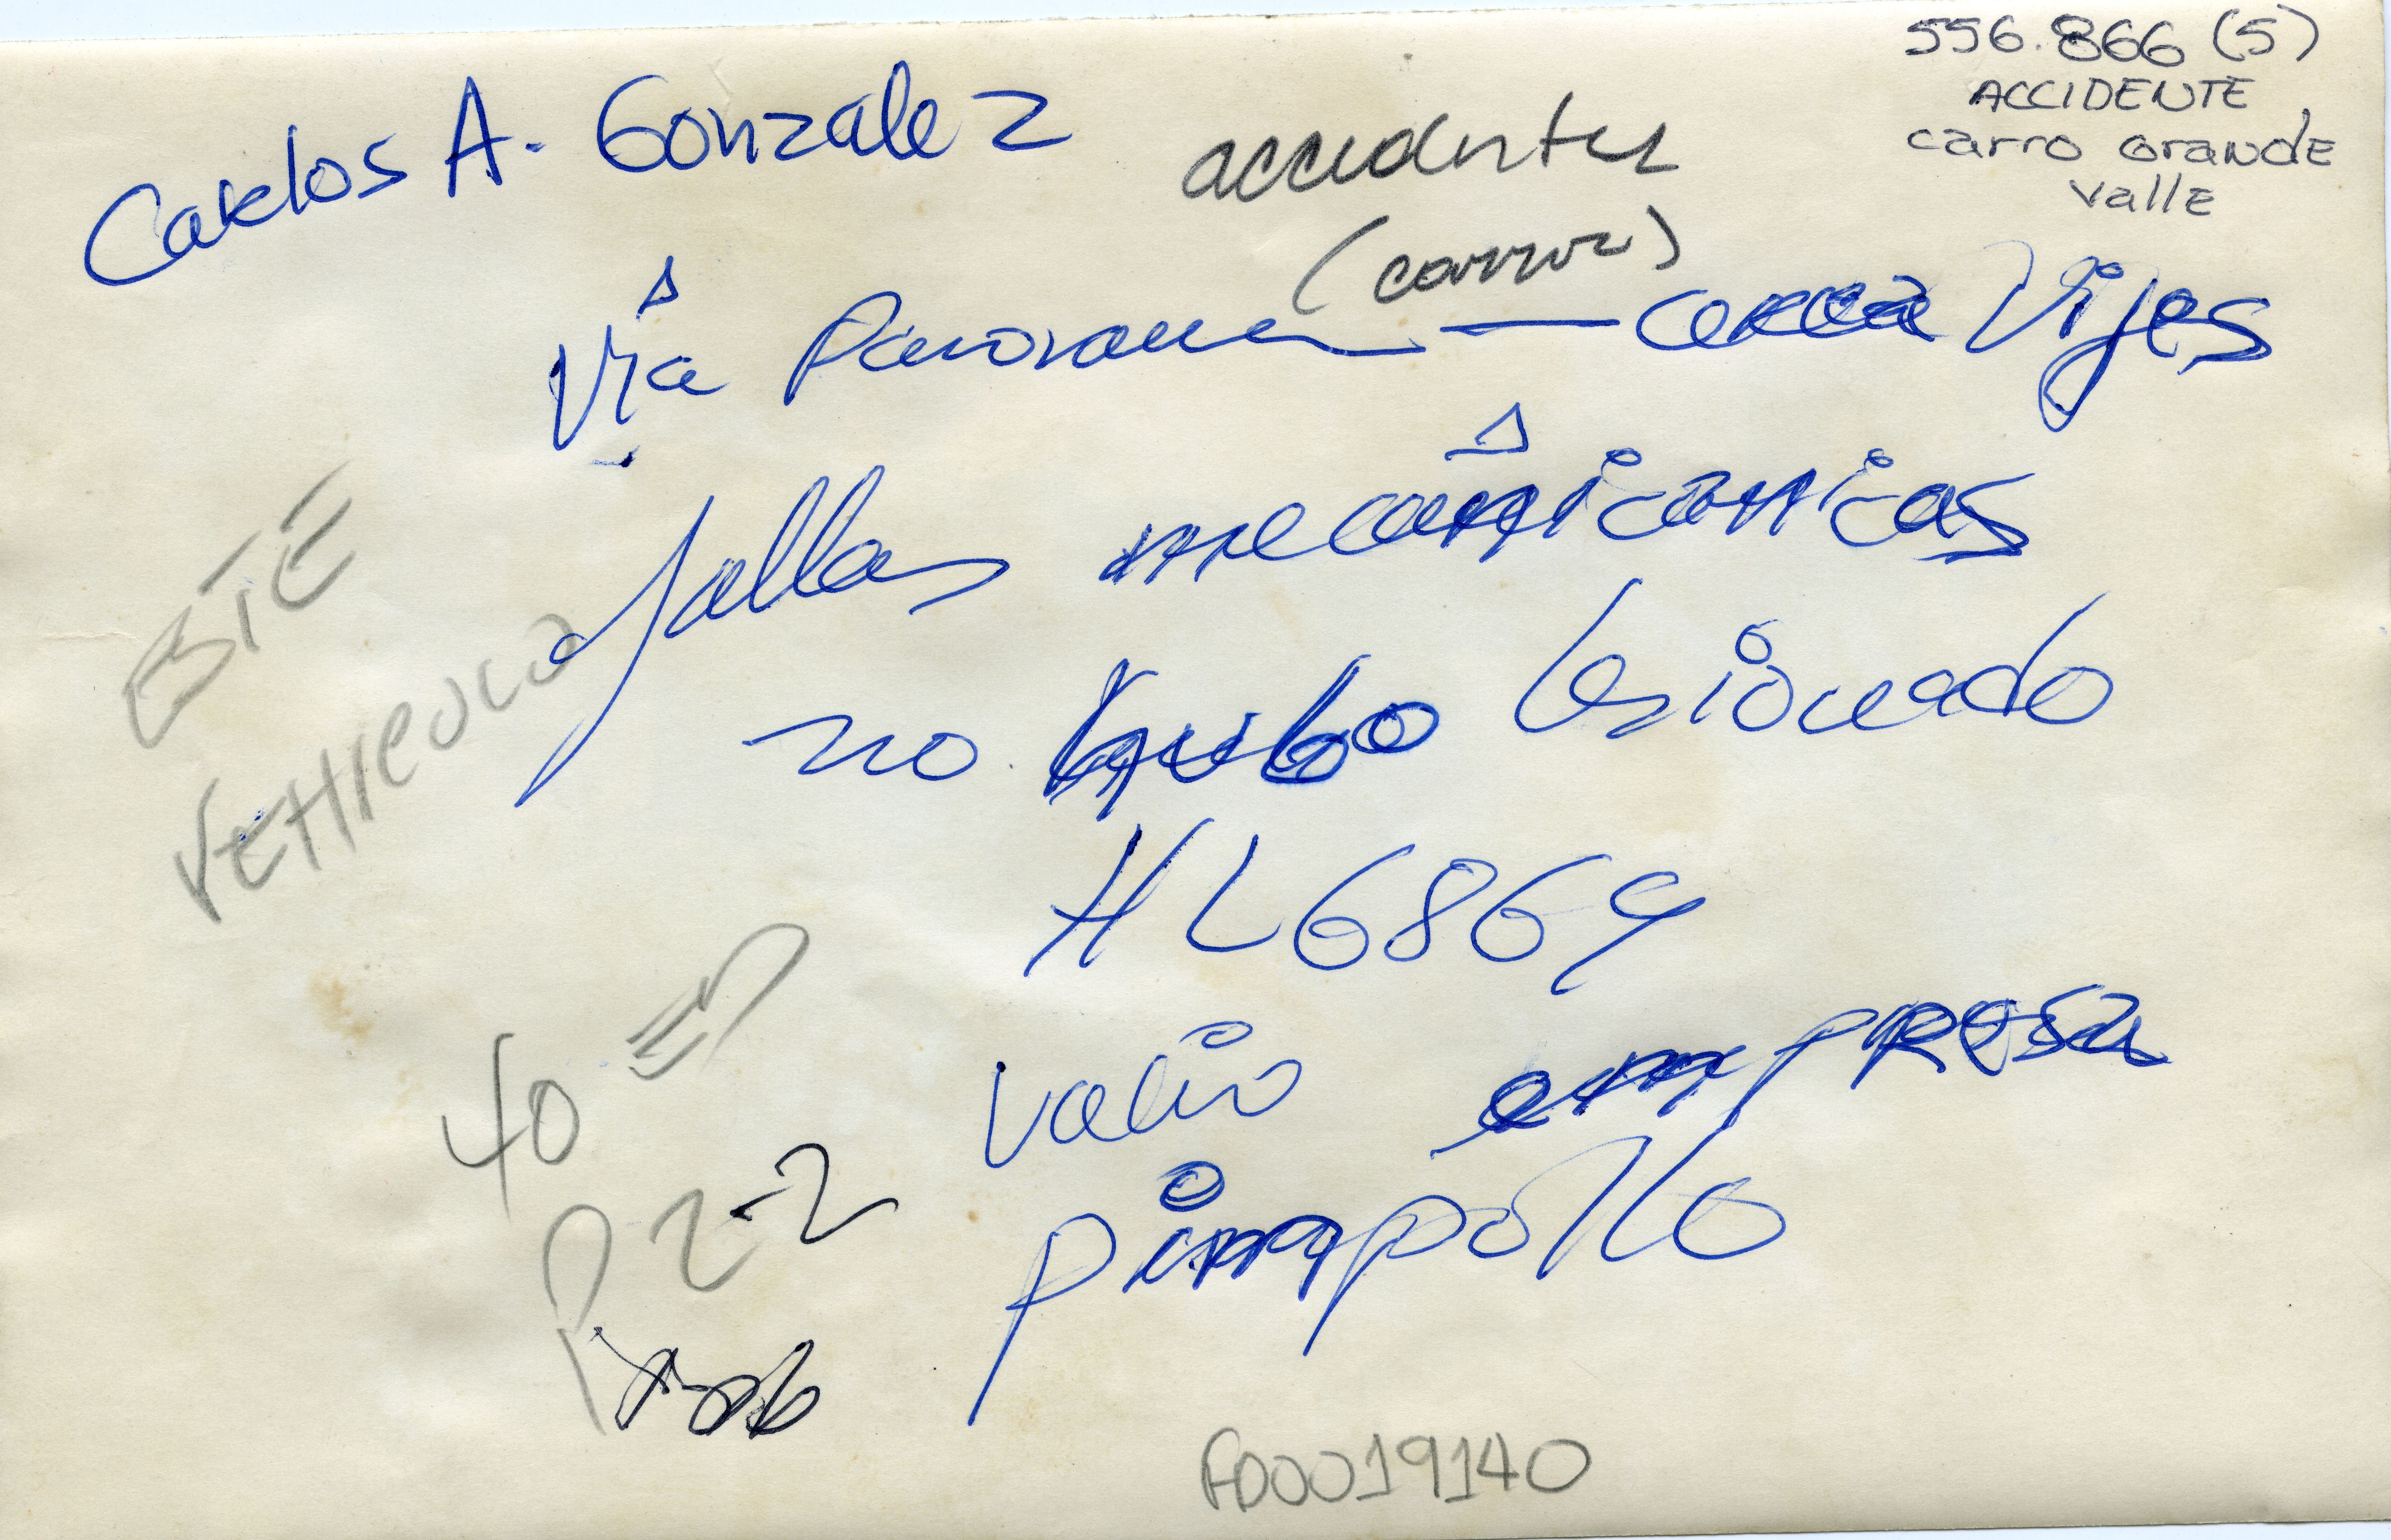 556.866 (5)
ACCIDENTE
carro GraNdE
vallE
Carlos A. Gonzalez
accidentes
(carros)
Vía Panorama — cerca Vijes
fallas mecánicanicas
no hubo lesionado
HL6869
valio empresa
pimpollo
ESTE
VEHICULO
40 En
P 2-2
A00019140